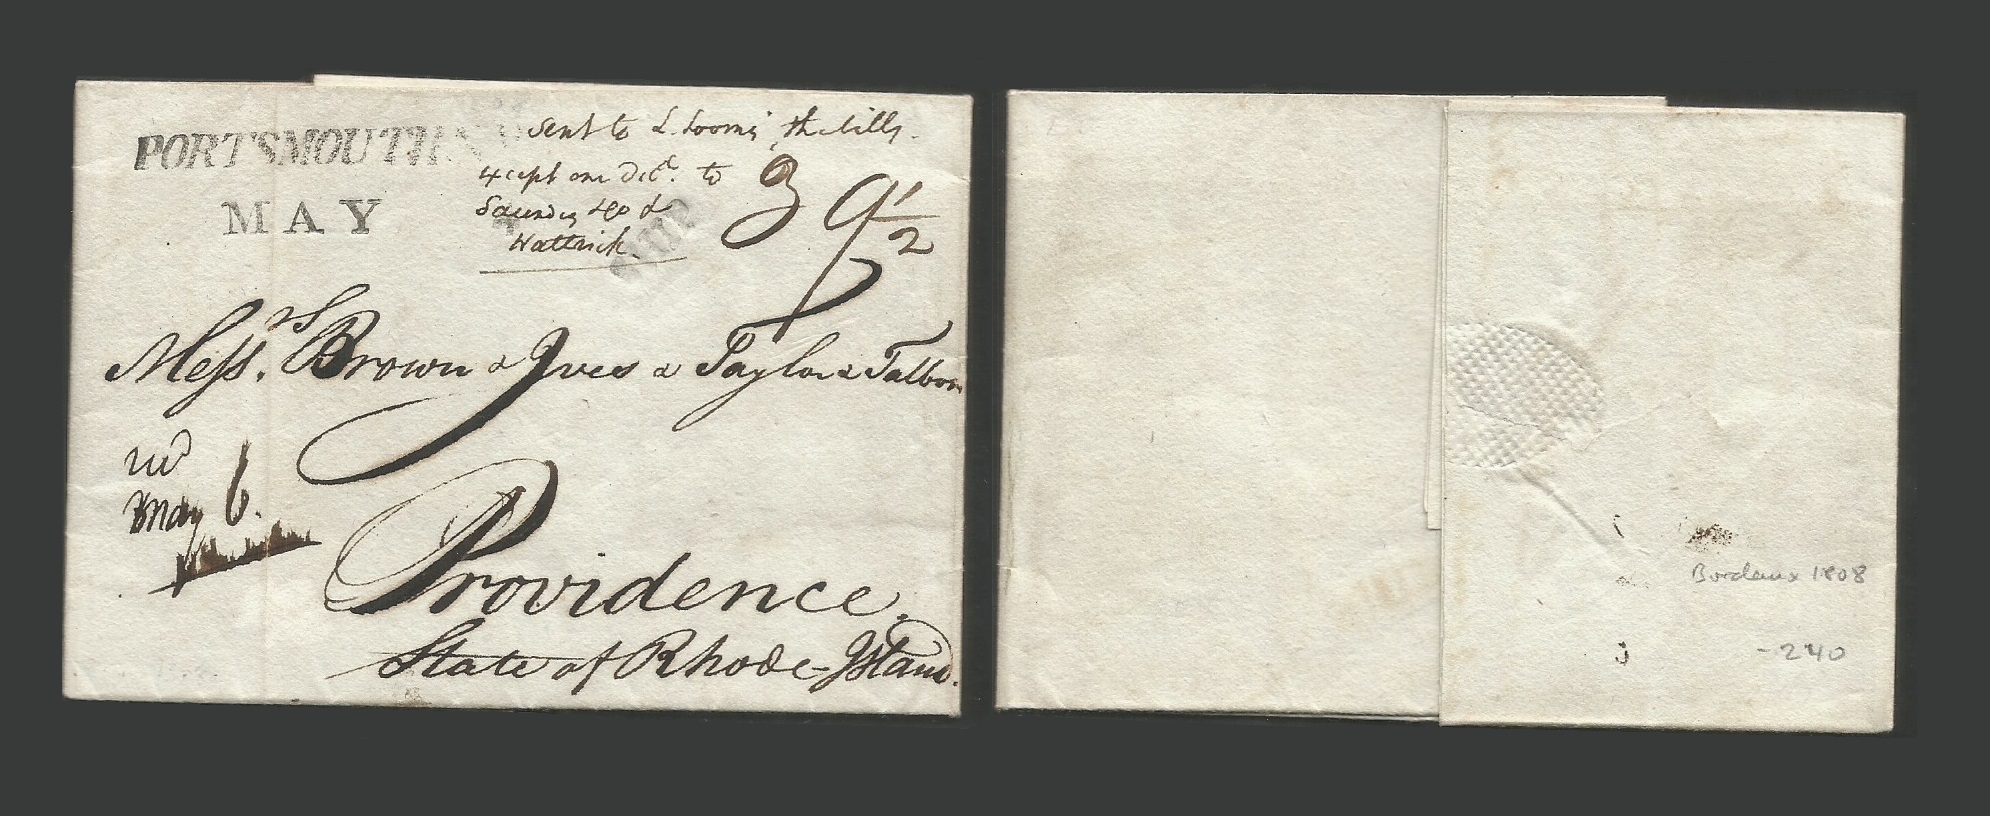 PORTSMOUTH
MAY
Sent to L. the bills.
except one to
SHIP
3 9 1/2
Mess.rs Brown & Ives & Taylor & Talbon
May 6.
Providence.
State of Rhode-Island.
Bordeaux 1808
-240